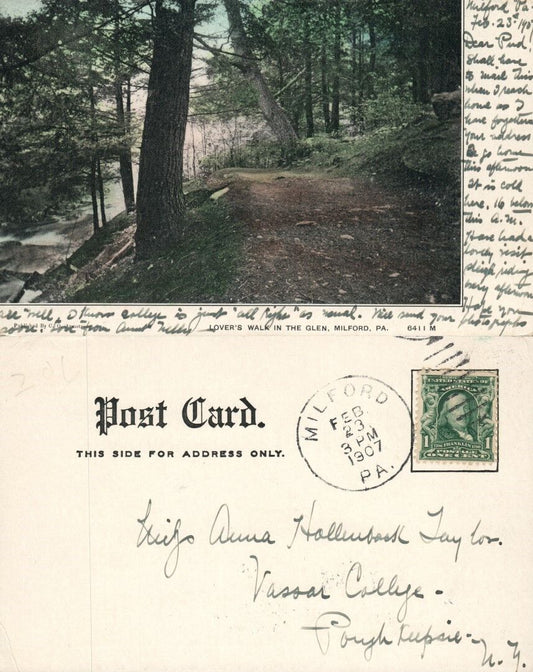 Milford Pa.
Feb. 23d 190
Dear Pud!
Shall have
to mail this
when I reach
home as I
have forgotten
your address
go home
this afternoon
It is cold
here, 16 below
this A.M.
Have had a
lovely visit
sleigh riding
every afternoon
Hope you
well, I know college is just "all right" as usual. Will send your photographs
soon. Your Aunt Nelly
Published By
LOVER'S WALK IN THE GLEN, MILFORD, PA.
6411 M
206
Post Card.
THIS SIDE FOR ADDRESS ONLY.
MILFORD
FEB
23
3 PM
1907
PA.
FRANKLIN
1
POSTAGE
ONE CENT
Miss Anna Hollenback Taylor.
Vassar College -
Poughkeepsie -
N. Y.